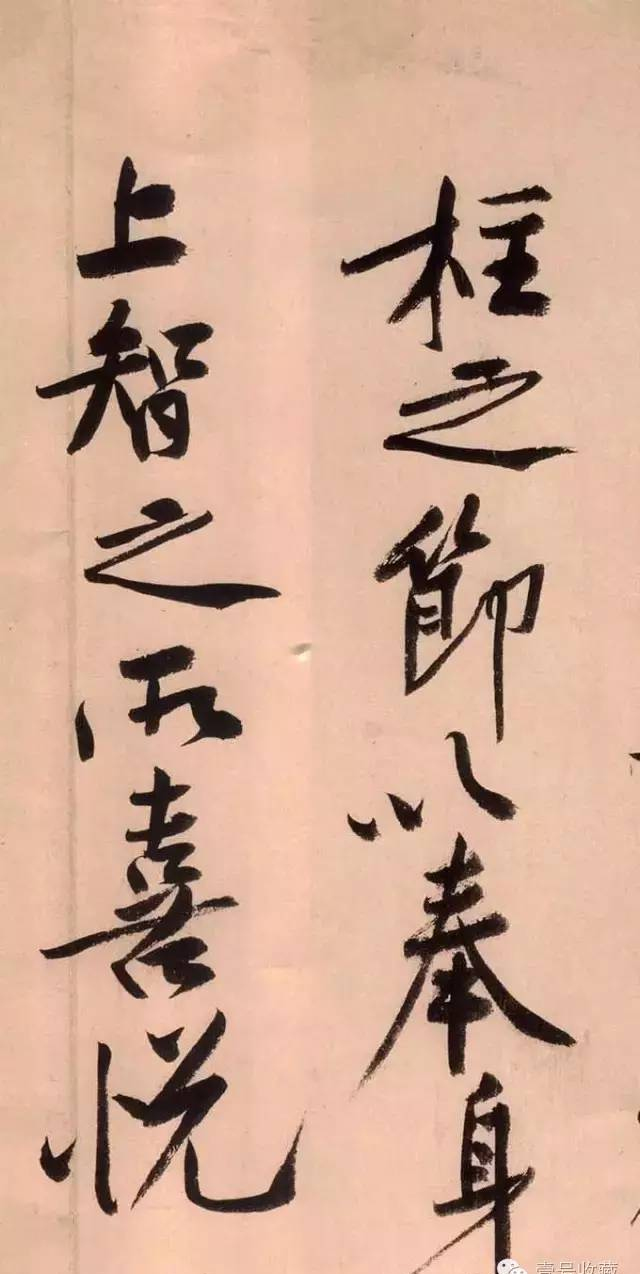 柱之節以奉身
上智之所喜悅
壹号收藏